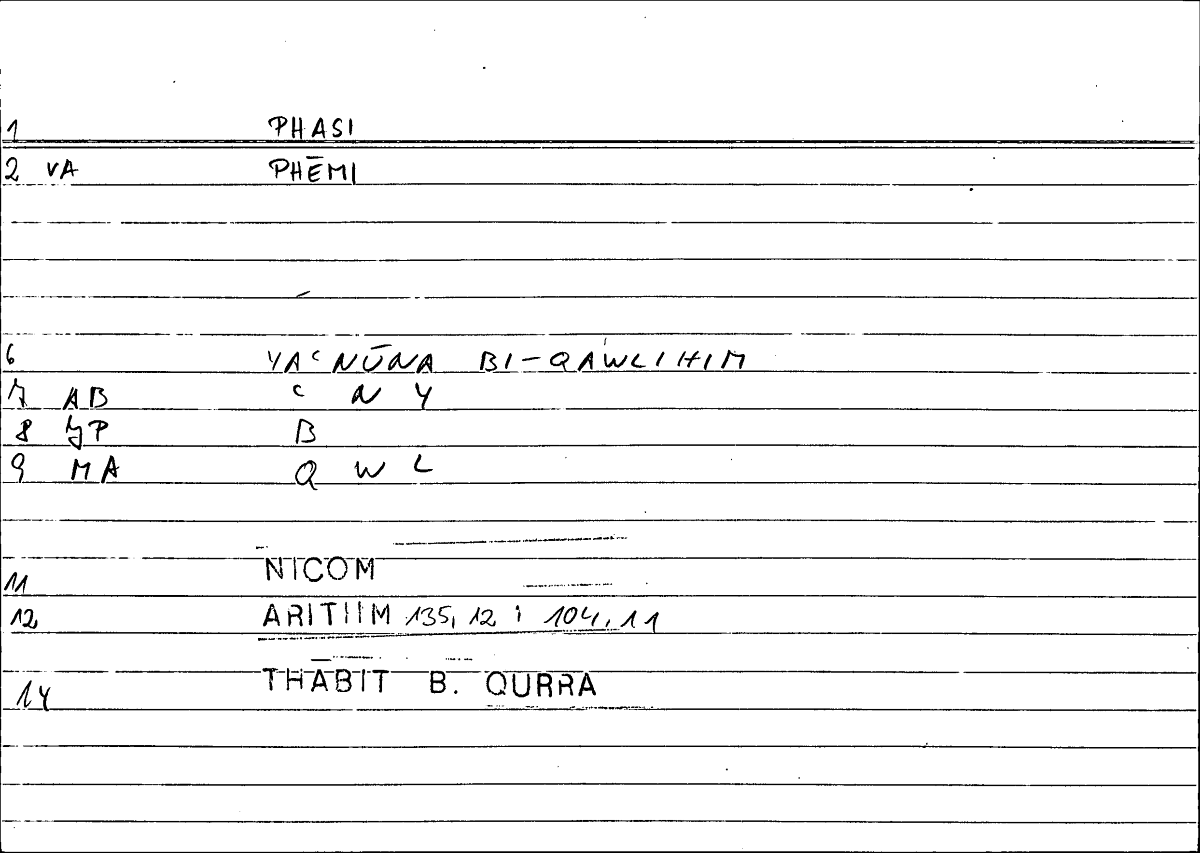 1 PHASI
2 VA PHĒMI
6 YAʿNŪNA BI-QAWLIHIM
7 AB ʿ N Y
8 YP B
9 MA Q W L
11 NICOM
12 ARITHM 135, 12 ; 104, 11
14 THĀBIT B. QURRA